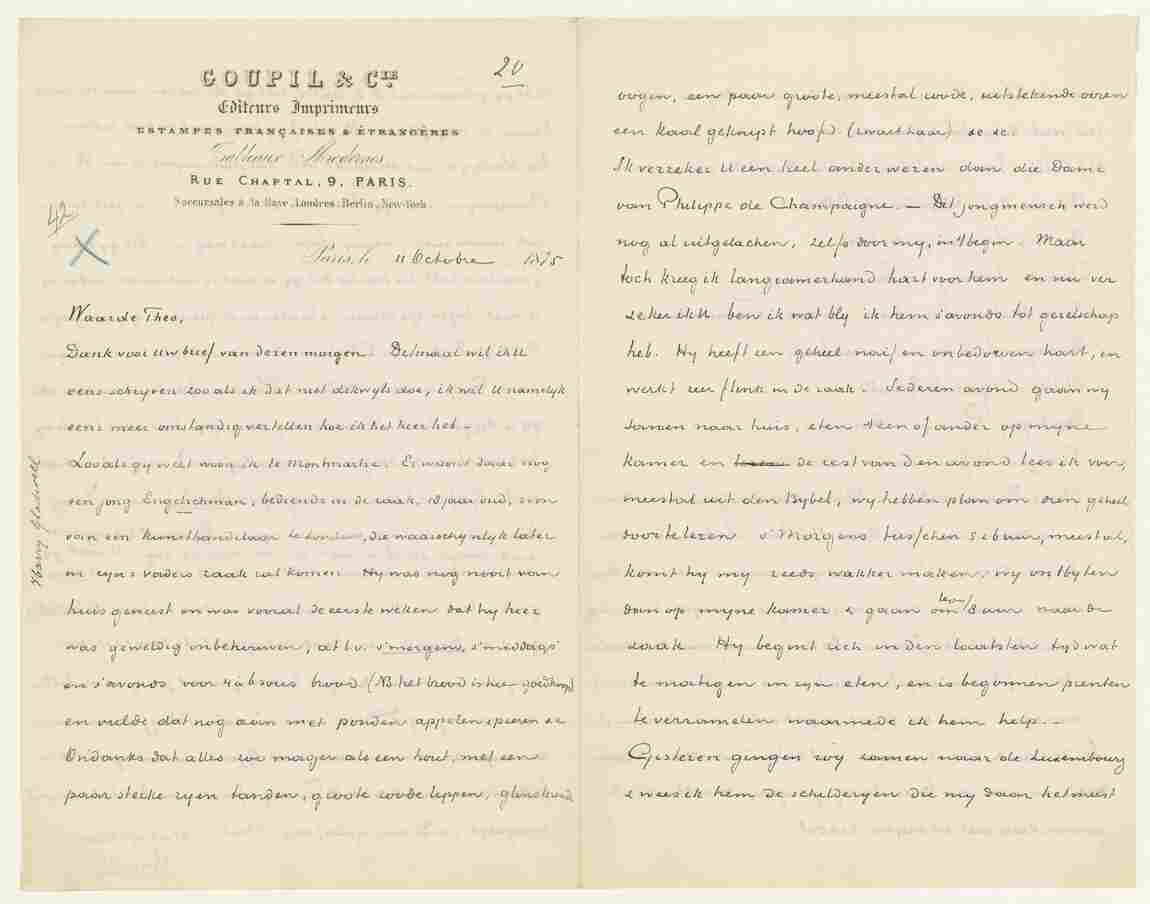 GOUPIL & CIE
20
Editeurs Imprimeurs
ESTAMPES FRANÇAISES & ÉTRANGÈRES
Tableaux Modernes
RUE CHAPTAL, 9, PARIS.
Succursales à la Haye, Londres, Berlin, New-York.
42
Paris, le 11 Octobre 1875
Waarde Theo,
Dank voor Uw brief van dezen morgen. Ditmaal wil ik U
eens schrijven zooals ik dat niet dikwijls doe, ik wil U namelijk
eens meer omstandig vertellen hoe ik het hier heb.-
Zooals gy weet woon ik te Montmartre. Er woont daar nog
een jong Engelschman, bediende in de zaak, 18 jaar oud, zoon
van een kunsthandelaar te Londen, die waarschynlyk later
in zyns vaders zaak zal komen. Hy was nog nooit van
huis geweest en was vooral de eerste weken dat hy hier
was geweldig onbehouwen, at b.v. s'morgens, s'middags
en s'avonds voor 4 à 6 sous brood (NB het brood is hier goedkoop)
en vulde dat nog aan met ponden appelen & peeren &c
Ondanks dat alles zoo mager als een hout, met een
paar sterke ryen tanden, groote roode lippen, glinsterende
Harry Gladwell
oogen, een paar groote, meestal roode, uitstekende ooren
een kaal geknipt hoofd (zwart haar) &c &c.
Ik verzeker U een heel ander wezen dan die Dame
van Philippe de Champaigne. — Dit jongmensch werd
nog al uitgelachen, zelfs door my, in 't begin. Maar
toch kreeg ik langzamerhand hart voor hem en nu ver
zeker ik U ben ik wat bly ik hem s'avonds tot gezelschap
heb. Hy heeft een geheel naïf en onbedorven hart, en
werkt zeer flink in de zaak. Iederen avond gaan wy
samen naar huis, eten 't een of ander op myne
kamer en de rest van den avond lees ik voor,
meestal uit den Bybel, wy hebben plan om dien geheel
door te lezen. s'Morgens tusschen 5 & 6 uur, meestal,
komt hy my reeds wakker maken, wy ontbyten
dan op myne kamer & gaan om 8 uur naar de
zaak. Hy begint zich in den laatsten tyd wat
te matigen in zyn eten, en is begonnen prenten
te verzamelen waarmede ik hem help.-
Gisteren gingen wy samen naar de Luxembourg
& wees ik hem de schilderyen die my daar het meest